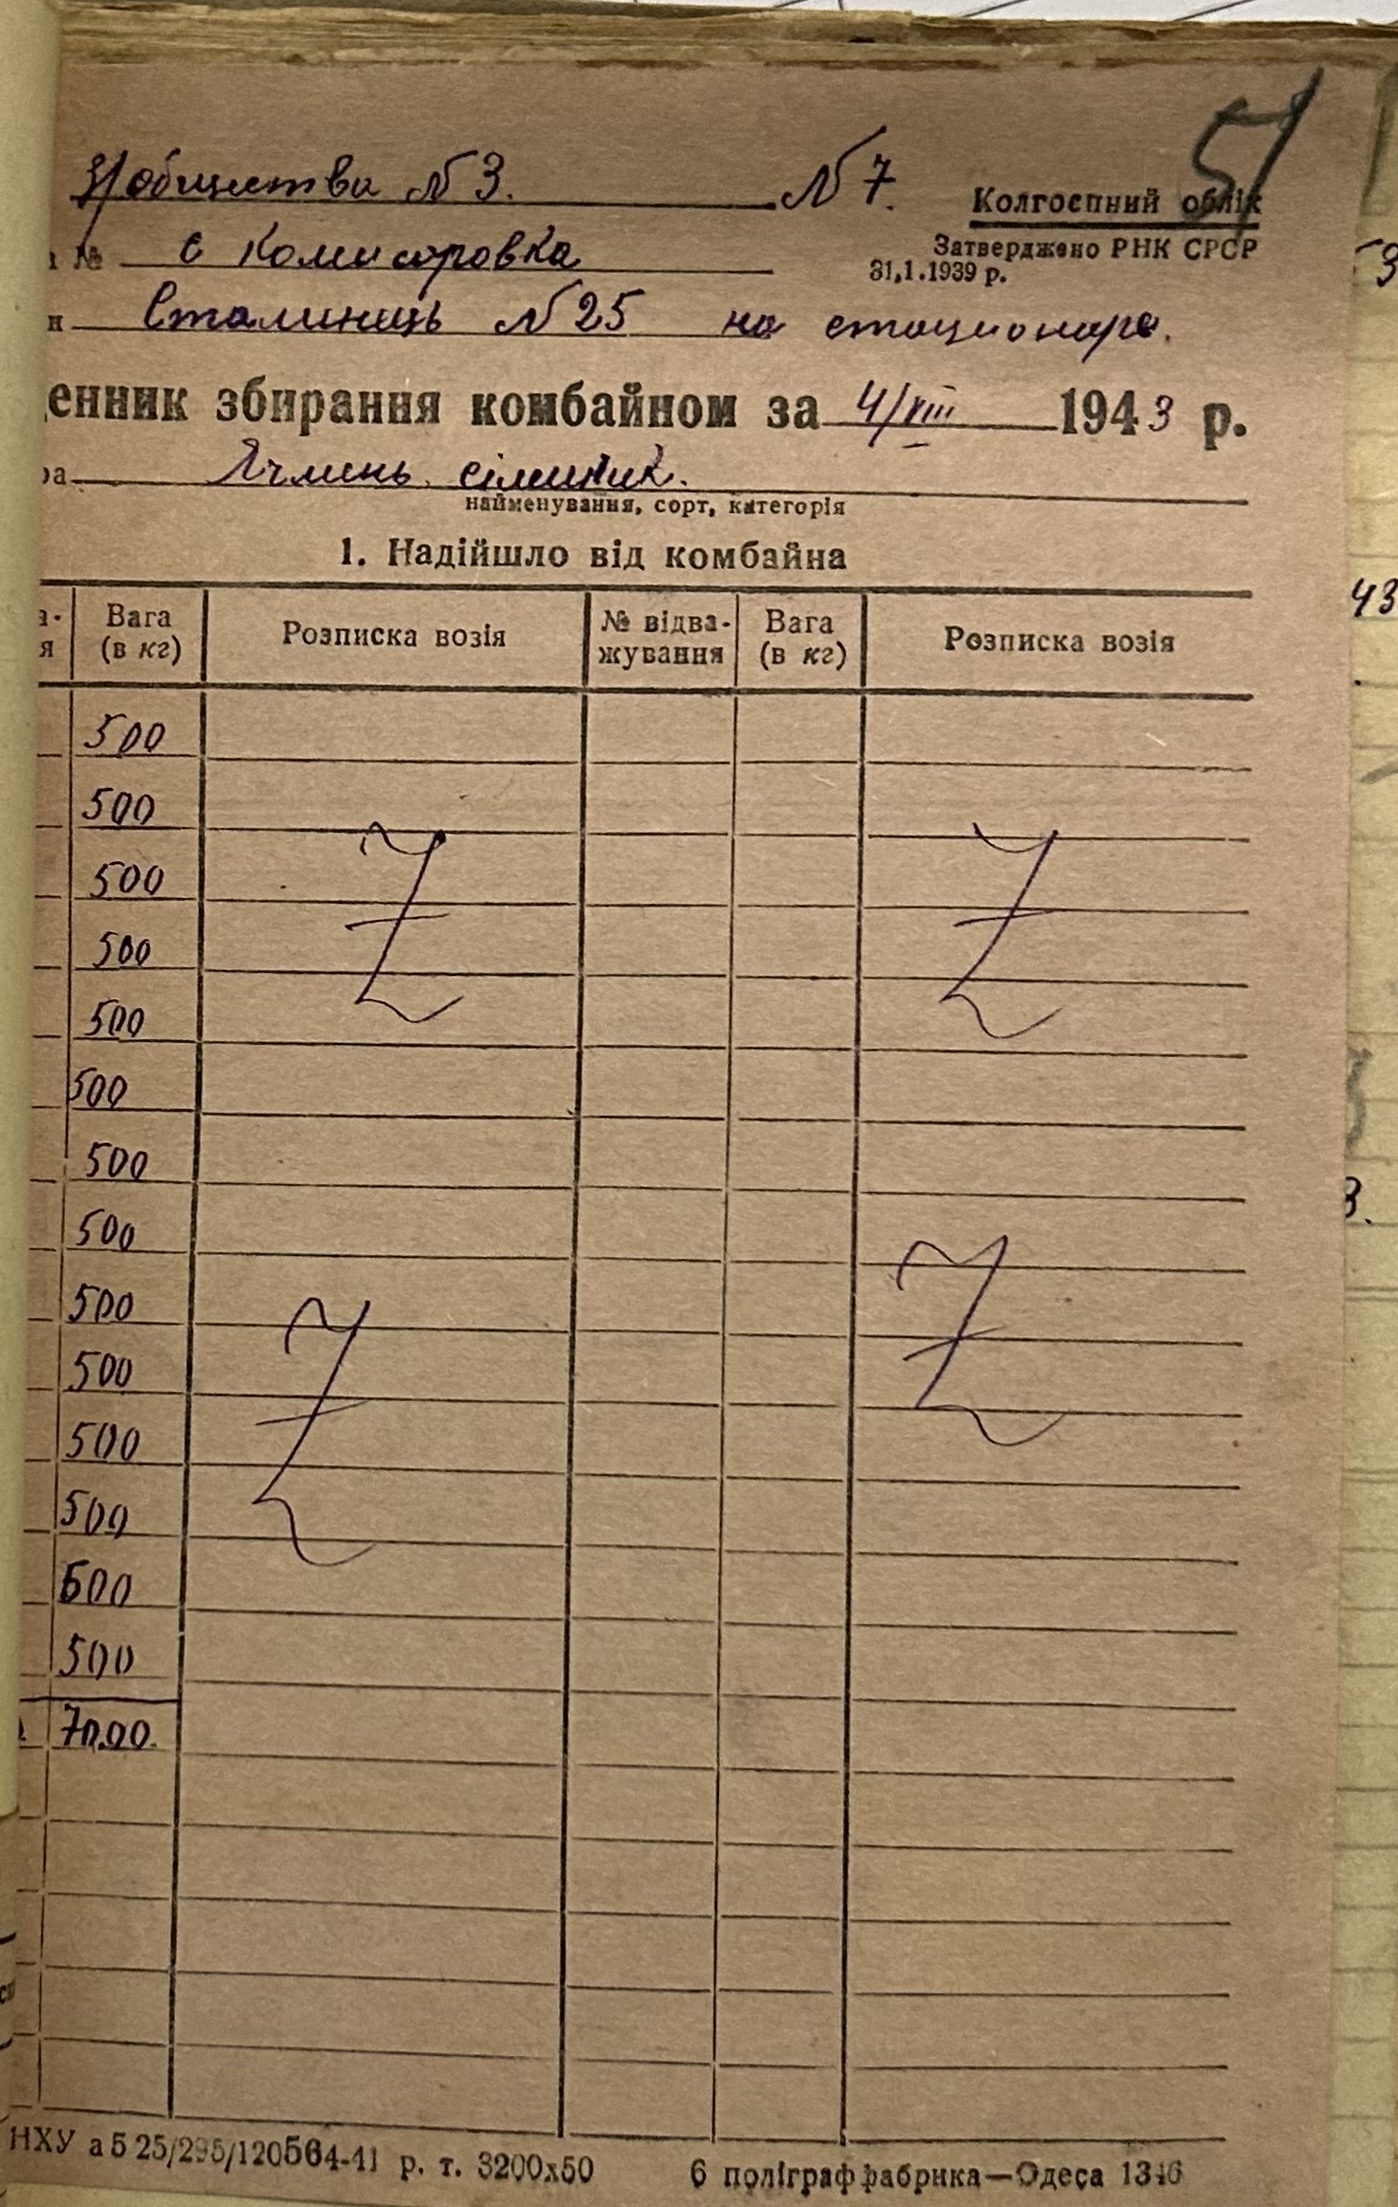 51
З/общества №3. №7. Колгоспний облік
№ с Комисаровка Затверджено РНК СРСР
31.1.1939 р.
Сталинець №25 на стационаре.
енник збирання комбайном за 4/VIII 1943 р.
Ячмень
найменування, сорт, категорія
1. Надійшло від комбайна
Вага (в кг) Розписка возія № відва-жування Вага (в кг) Розписка возія
500
500
500
500
500
500
500
500
500
500
500
500
500
500
7000.
НХУ а5 25/295/120564-41 р. т. 3200х50 6 поліграффабрика—Одеса 1346
43